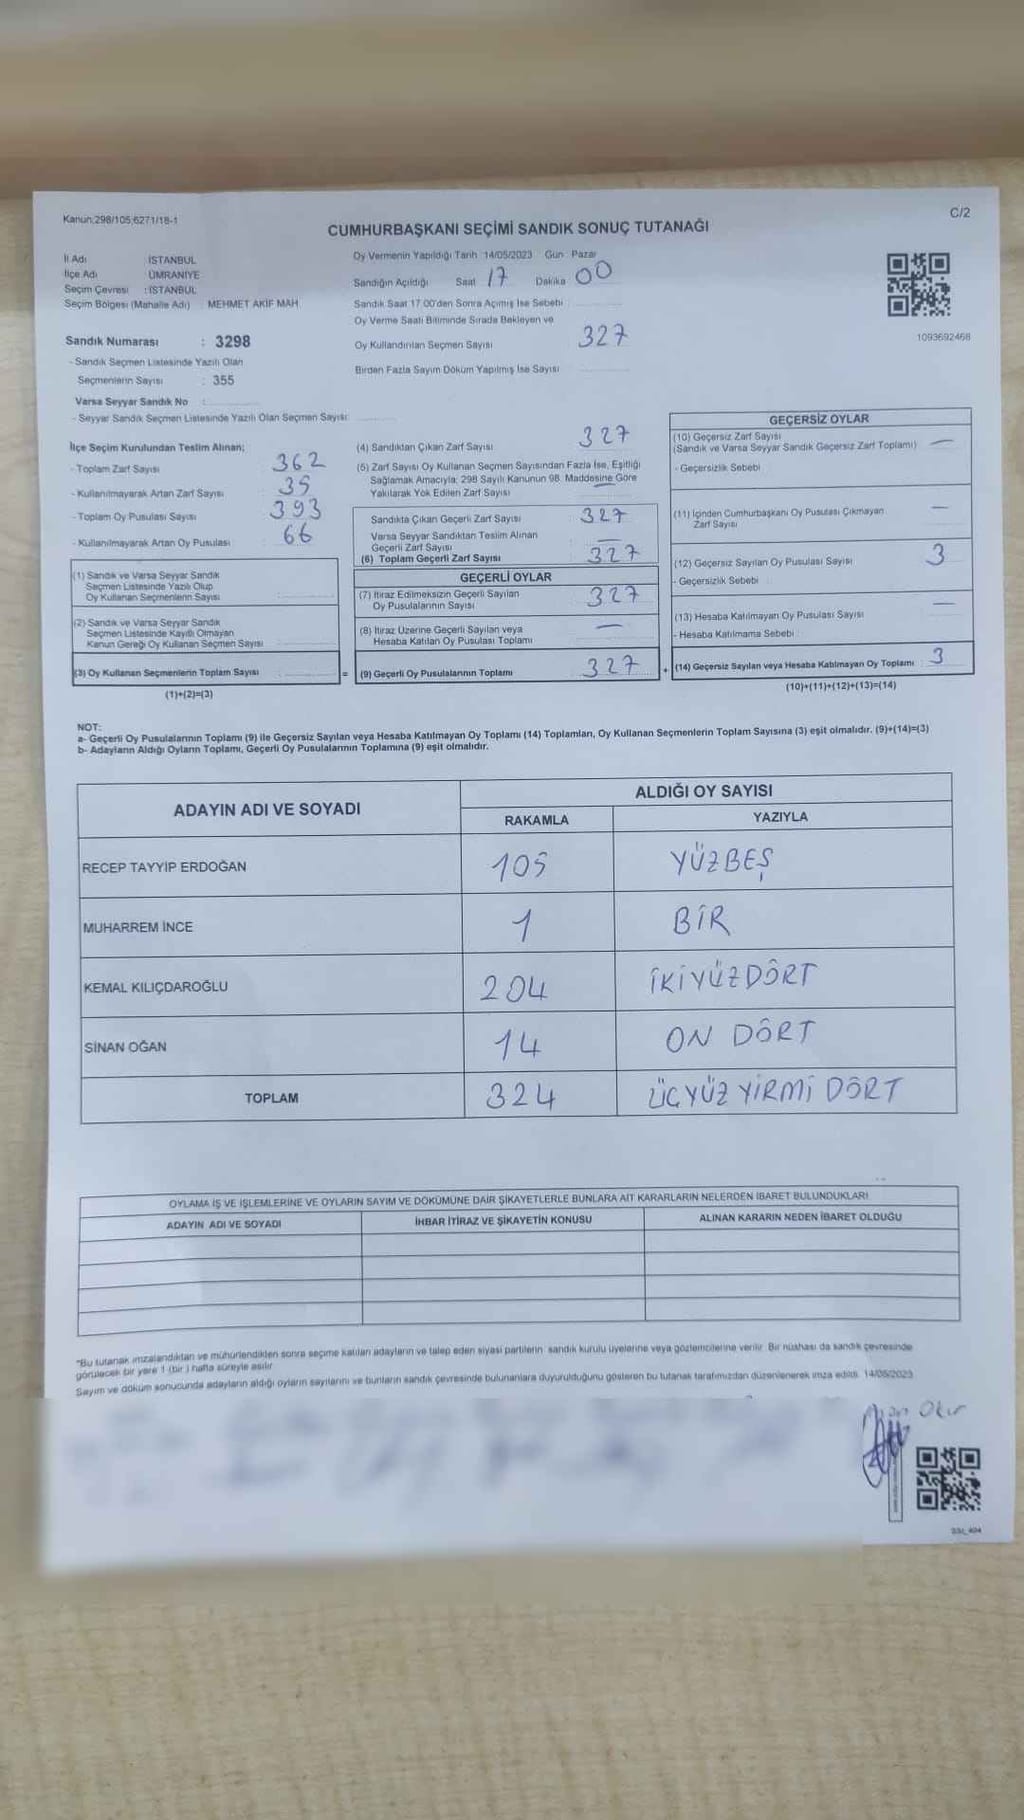 Kanun:298/105;6271/18-1
C/2
CUMHURBAŞKANI SEÇİMİ SANDIK SONUÇ TUTANAĞI
İl Adı İSTANBUL
İlçe Adı ÜMRANİYE
Seçim Çevresi : İSTANBUL
Seçim Bölgesi (Mahalle Adı) MEHMET AKİF MAH.
Sandık Numarası : 3298
- Sandık Seçmen Listesinde Yazılı Olan
Seçmenlerin Sayısı : 355
Varsa Seyyar Sandık No :
- Seyyar Sandık Seçmen Listesinde Yazılı Olan Seçmen Sayısı:
Oy Vermenin Yapıldığı Tarih 14/05/2023 Gün : Pazar
Sandığın Açıldığı Saat 17 Dakika 00
Sandık Saat 17.00'den Sonra Açılmış İse Sebebi
Oy Verme Saati Bitiminde Sırada Bekleyen ve
Oy Kullandırılan Seçmen Sayısı 327
Birden Fazla Sayım Döküm Yapılmış İse Sayısı
1093692468
İlçe Seçim Kurulundan Teslim Alınan;
- Toplam Zarf Sayısı 362
- Kullanılmayarak Artan Zarf Sayısı 35
- Toplam Oy Pusulası Sayısı 393
- Kullanılmayarak Artan Oy Pusulası 66
(1) Sandık ve Varsa Seyyar Sandık
Seçmen Listesinde Yazılı Olup
Oy Kullanan Seçmenlerin Sayısı
(2) Sandık ve Varsa Seyyar Sandık
Seçmen Listesinde Kayıtlı Olmayan
Kanun Gereği Oy Kullanan Seçmen Sayısı
(3) Oy Kullanan Seçmenlerin Toplam Sayısı
(1)+(2)=(3)
(4) Sandıktan Çıkan Zarf Sayısı 327
(5) Zarf Sayısı Oy Kullanan Seçmen Sayısından Fazla İse, Eşitliği
Sağlamak Amacıyla; 298 Sayılı Kanunun 98. Maddesine Göre
Yakılarak Yok Edilen Zarf Sayısı —
Sandıkta Çıkan Geçerli Zarf Sayısı 327
Varsa Seyyar Sandıktan Teslim Alınan
Geçerli Zarf Sayısı —
(6) Toplam Geçerli Zarf Sayısı 327
GEÇERLİ OYLAR
(7) İtiraz Edilmeksizin Geçerli Sayılan
Oy Pusulalarının Sayısı 327
(8) İtiraz Üzerine Geçerli Sayılan veya
Hesaba Katılan Oy Pusulası Toplamı —
= (9) Geçerli Oy Pusulalarının Toplamı 327 +
GEÇERSİZ OYLAR
(10) Geçersiz Zarf Sayısı
(Sandık ve Varsa Seyyar Sandık Geçersiz Zarf Toplamı) —
- Geçersizlik Sebebi
(11) İçinden Cumhurbaşkanı Oy Pusulası Çıkmayan —
Zarf Sayısı
(12) Geçersiz Sayılan Oy Pusulası Sayısı 3
- Geçersizlik Sebebi
(13) Hesaba Katılmayan Oy Pusulası Sayısı —
- Hesaba Katılmama Sebebi
(14) Geçersiz Sayılan veya Hesaba Katılmayan Oy Toplamı 3
(10)+(11)+(12)+(13)=(14)
NOT:
a- Geçerli Oy Pusulalarının Toplamı (9) ile Geçersiz Sayılan veya Hesaba Katılmayan Oy Toplamı (14) Toplamları, Oy Kullanan Seçmenlerin Toplam Sayısına (3) eşit olmalıdır. (9)+(14)=(3)
b- Adayların Aldığı Oyların Toplamı, Geçerli Oy Pusulalarının Toplamına (9) eşit olmalıdır.
ADAYIN ADI VE SOYADI ALDIĞI OY SAYISI
RAKAMLA YAZIYLA
RECEP TAYYİP ERDOĞAN 105 YÜZBEŞ
MUHARREM İNCE 1 BİR
KEMAL KILIÇDAROĞLU 204 İKİYÜZDÖRT
SİNAN OĞAN 14 ON DÖRT
TOPLAM 324 ÜÇYÜZ YİRMİ DÖRT
OYLAMA İŞ VE İŞLEMLERİNE VE OYLARIN SAYIM VE DÖKÜMÜNE DAİR ŞİKAYETLERLE BUNLARA AİT KARARLARIN NELERDEN İBARET BULUNDUKLARI
ADAYIN ADI VE SOYADI İHBAR İTİRAZ VE ŞİKAYETİN KONUSU ALINAN KARARIN NEDEN İBARET OLDUĞU
*Bu tutanak imzalandıktan ve mühürlendikten sonra seçime katılan adayların ve talep eden siyasi partilerin sandık kurulu üyelerine veya gözlemcilerine verilir. Bir nüshası da sandık çevresinde
görülecek bir yere 1 (bir) hafta süreyle asılır.
Sayım ve döküm sonucunda adayların aldığı oyların sayılarını ve bunların sandık çevresinde bulunanlara duyurulduğunu gösteren bu tutanak tarafımızdan düzenlenerek imza edildi. 14/05/2023